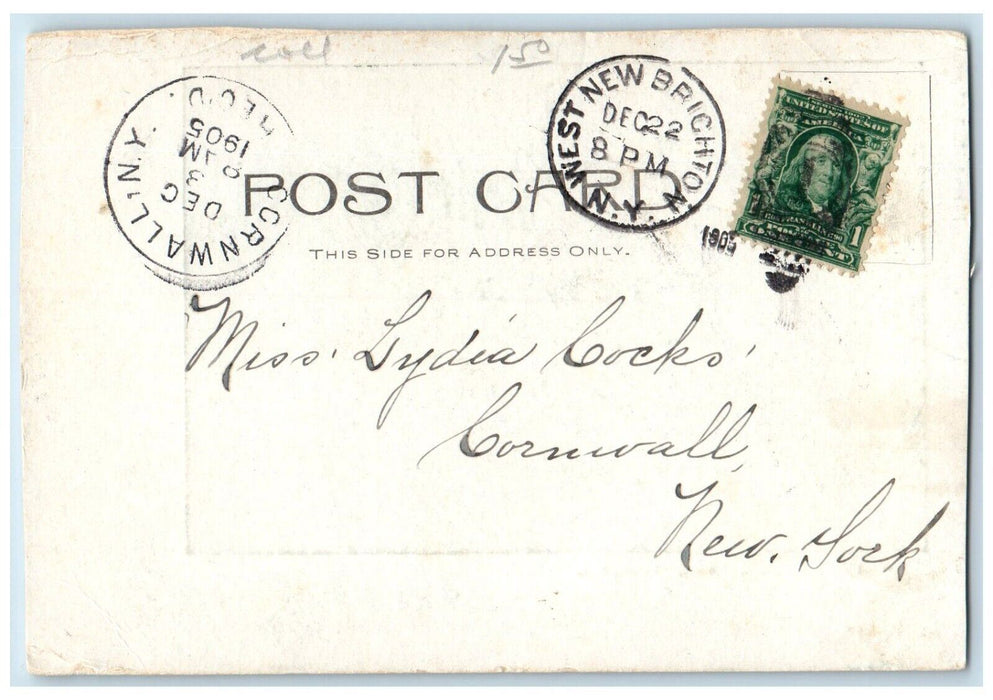 coll 1.50
WEST NEW BRIGHTON
N.Y.
DEC 22
8 PM
1905
CORNWALL, N.Y.
DEC
8 AM
1905
REC'D.
UNITED STATES OF AMERICA
FRANKLIN
POSTAGE
ONE CENT 1
POST CARD
THIS SIDE FOR ADDRESS ONLY.
Miss Lydia Cocks
Cornwall,
New York